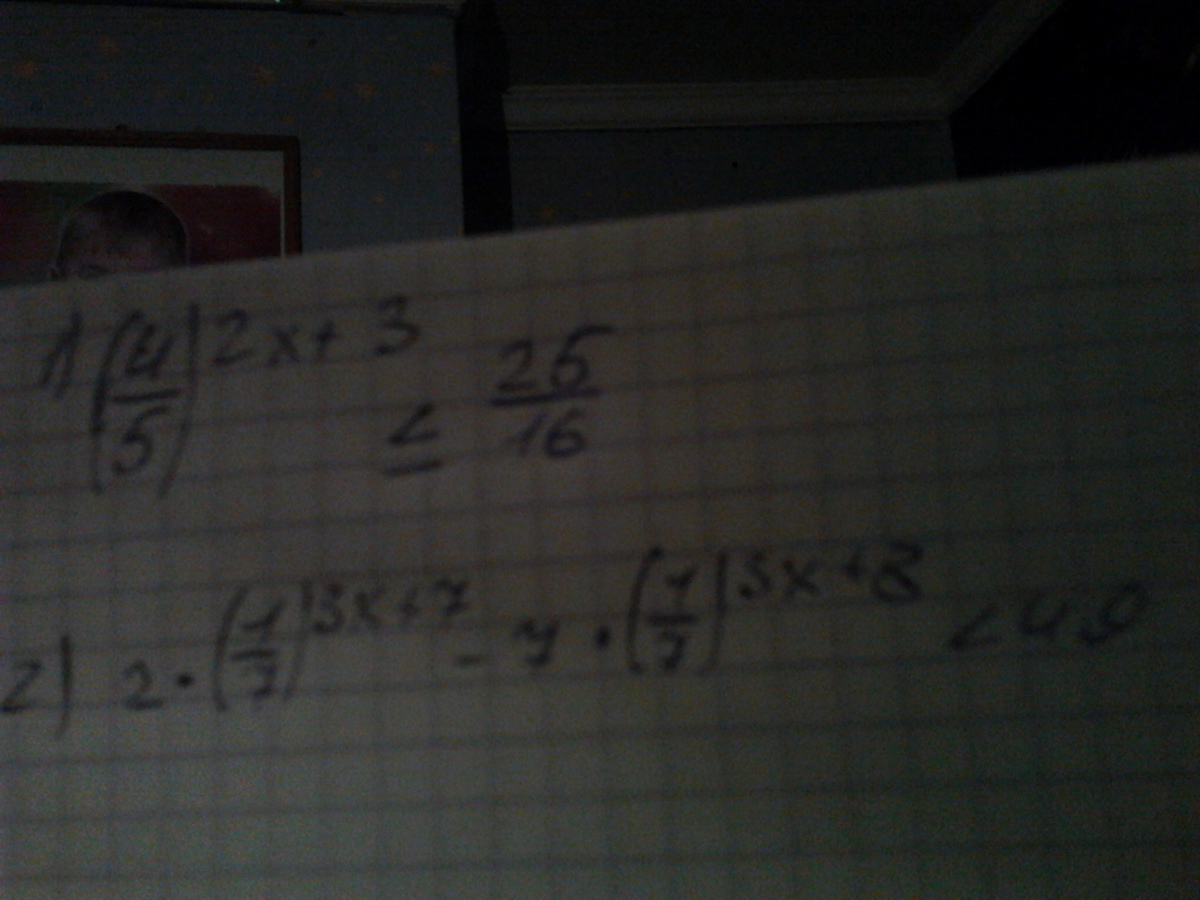 1) (4/5)^2x+3 ≤ 25/16
2) 2·(1/7)^3x+7 - 7·(1/7)^3x+8 < 49